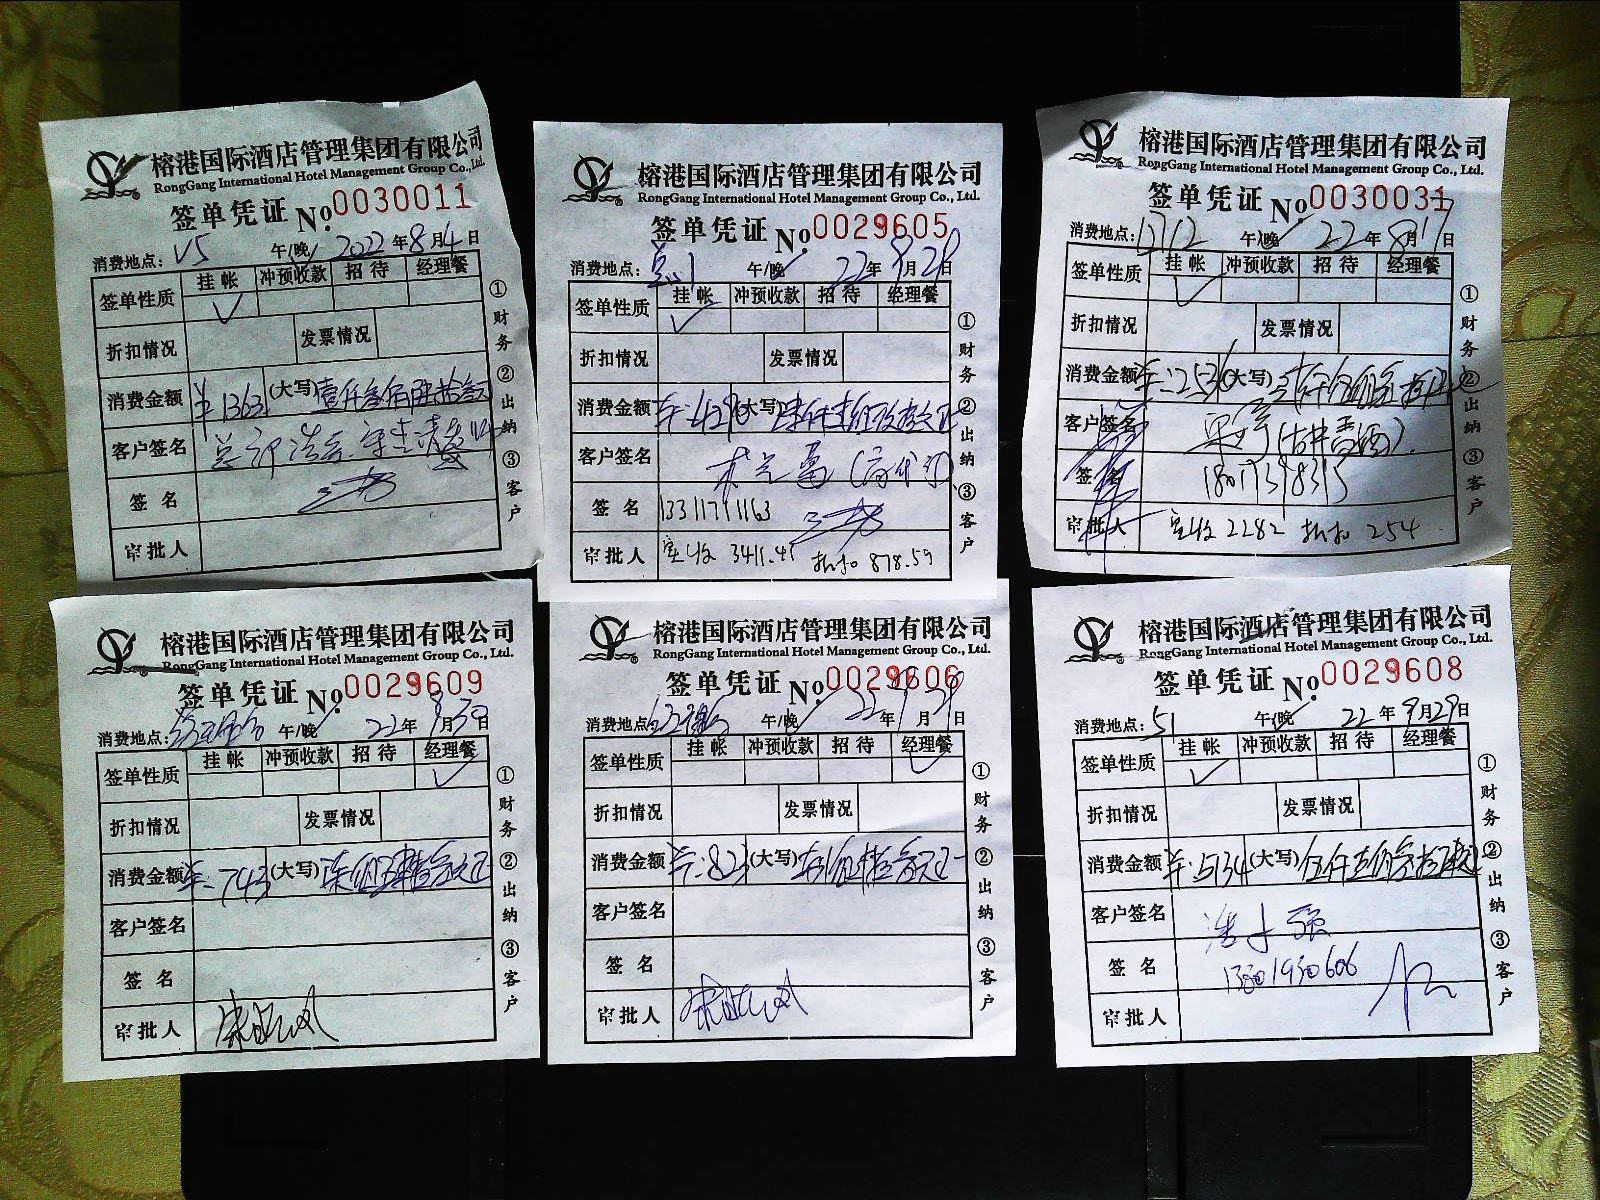 榕港国际酒店管理集团有限公司
RongGang International Hotel Management Group Co., Ltd.
签单凭证 No. 0030011
消费地点: V5 午/晚 2022 年 8 月 4 日
签单性质 挂帐 冲预收款 招待 经理餐
折扣情况 发票情况
消费金额 1363 (大写) 壹仟叁佰陆拾叁元
客户签名
签名
审批人
①财务 ②出纳 ③客户
榕港国际酒店管理集团有限公司
RongGang International Hotel Management Group Co., Ltd.
签单凭证 No. 0029605
消费地点: 午/晚 22 年 月 28 日
签单性质 挂帐 冲预收款 招待 经理餐
折扣情况 发票情况
消费金额 (大写)
客户签名
签名 13311711163
审批人 实收 3411.41 折扣 878.59
①财务 ②出纳 ③客户
榕港国际酒店管理集团有限公司
RongGang International Hotel Management Group Co., Ltd.
签单凭证 No. 0030031
消费地点: 午/晚 22 年 8 月 17 日
签单性质 挂帐 冲预收款 招待 经理餐
折扣情况 发票情况
消费金额 2536 (大写)
客户签名
签名
审批人 实收 2282 折扣 254
①财务 ②出纳 ③客户
榕港国际酒店管理集团有限公司
RongGang International Hotel Management Group Co., Ltd.
签单凭证 No. 0029609
消费地点: 午/晚 22 年 月 30 日
签单性质 挂帐 冲预收款 招待 经理餐
折扣情况 发票情况
消费金额 743 (大写) 柒佰肆拾叁元正
客户签名
签名
审批人
①财务 ②出纳 ③客户
榕港国际酒店管理集团有限公司
RongGang International Hotel Management Group Co., Ltd.
签单凭证 No. 0029606
消费地点: 午/晚 22 年 月 29 日
签单性质 挂帐 冲预收款 招待 经理餐
折扣情况 发票情况
消费金额 823 (大写)
客户签名
签名
审批人
①财务 ②出纳 ③客户
榕港国际酒店管理集团有限公司
RongGang International Hotel Management Group Co., Ltd.
签单凭证 No. 0029608
消费地点: 51 午/晚 22 年 月 29 日
签单性质 挂帐 冲预收款 招待 经理餐
折扣情况 发票情况
消费金额 5134 (大写) 伍仟壹佰叁拾肆元
客户签名
签名 13801930606
审批人
①财务 ②出纳 ③客户